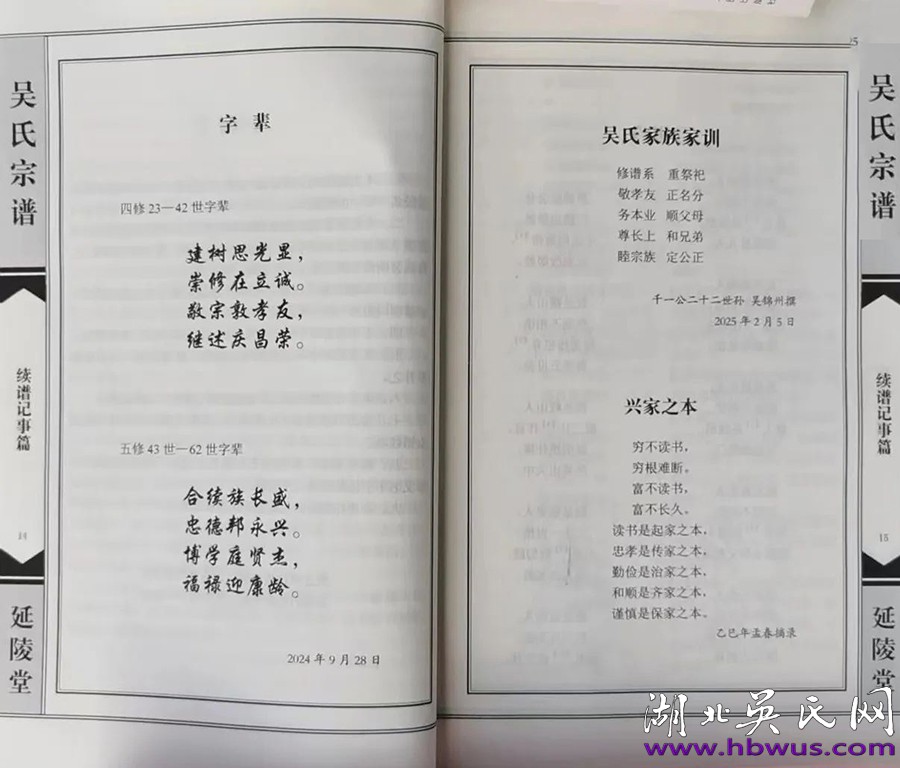 吴氏宗谱
续谱记事篇
14
延陵堂
字辈
四修23—42世字辈
建树思光显,
崇修在立诚。
敬宗敦孝友,
继述庆昌荣。
五修43世—62世字辈
合续族长盛,
忠德邦永兴。
博学庭贤杰,
福禄迎康龄。
2024年9月28日
吴氏家族家训
修谱系 重祭祀
敬孝友 正名分
务本业 顺父母
尊长上 和兄弟
睦宗族 定公正
千一公二十二世孙 吴锦州撰
2025年2月5日
兴家之本
穷不读书,
穷根难断。
富不读书,
富不长久。
读书是起家之本,
忠孝是传家之本,
勤俭是治家之本,
和顺是齐家之本,
谨慎是保家之本。
乙巳年孟春摘录
吴氏宗谱
续谱记事篇
15
延陵堂
湖北吴氏网
www.hbwus.com